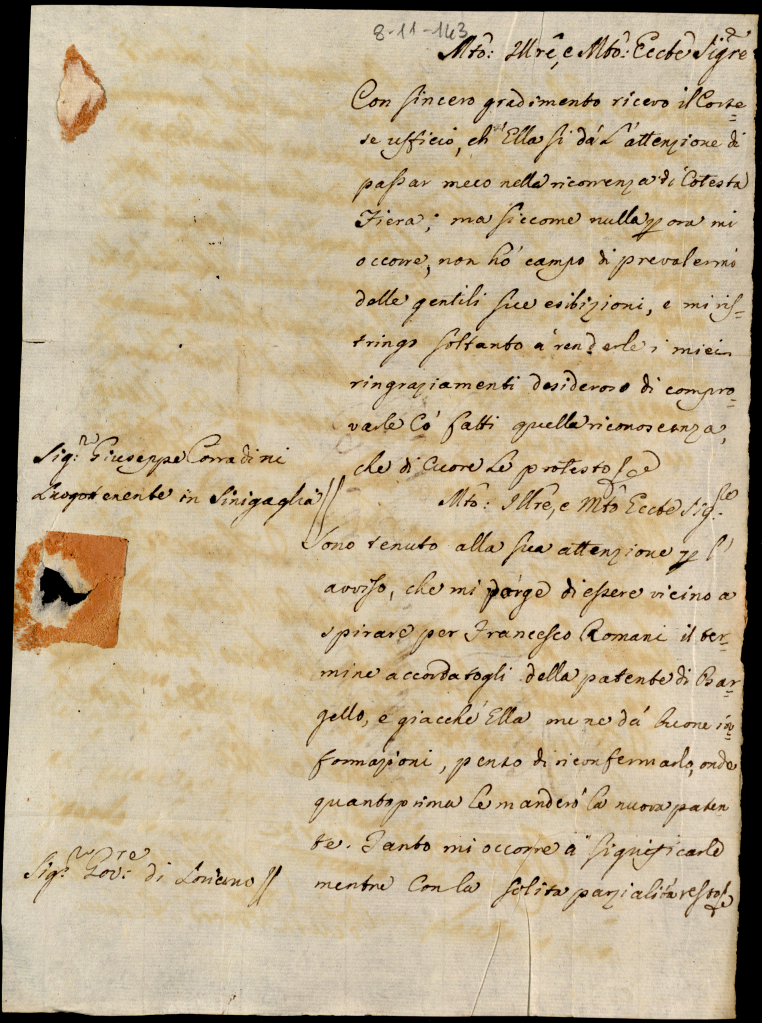 8-11-143
Mto: Illre, e Mto: Eccte Sigre
Con sincero gradimento ricevo il Corte=
se ufficio, ch' Ella si dà l'attenzione di
passar meco nella ricorrenza di Cotesta
Fiera; ma siccome nulla p ora mi
occorre, non hò campo di prevalermi
delle gentili sue esibizioni, e mi ris=
tringo soltanto à renderle i miei
ringraziamenti desideroso di compro=
varle Có fatti quella riconoscenza,
che di Cuore Le protesto
Sigr Giuseppe Corradini
Luogotenente in Sinigaglia //
Mto: Illre, e Mto Eccte Sigre
Sono tenuto alla sua attenzione p l'
avviso, che mi porge di essere vicino a
spirare per Francesco Romani il ter=
mine accordatogli della patente di Bar=
gello, e giacché Ella me ne dà buone in=
formazioni, penso di riconfermarlo, onde
quantoprima Le manderò la nuova paten
te. Tanto mi occorre à significarle
mentre Con la solita parzialità resto
Sigr Govre: di Loriano //